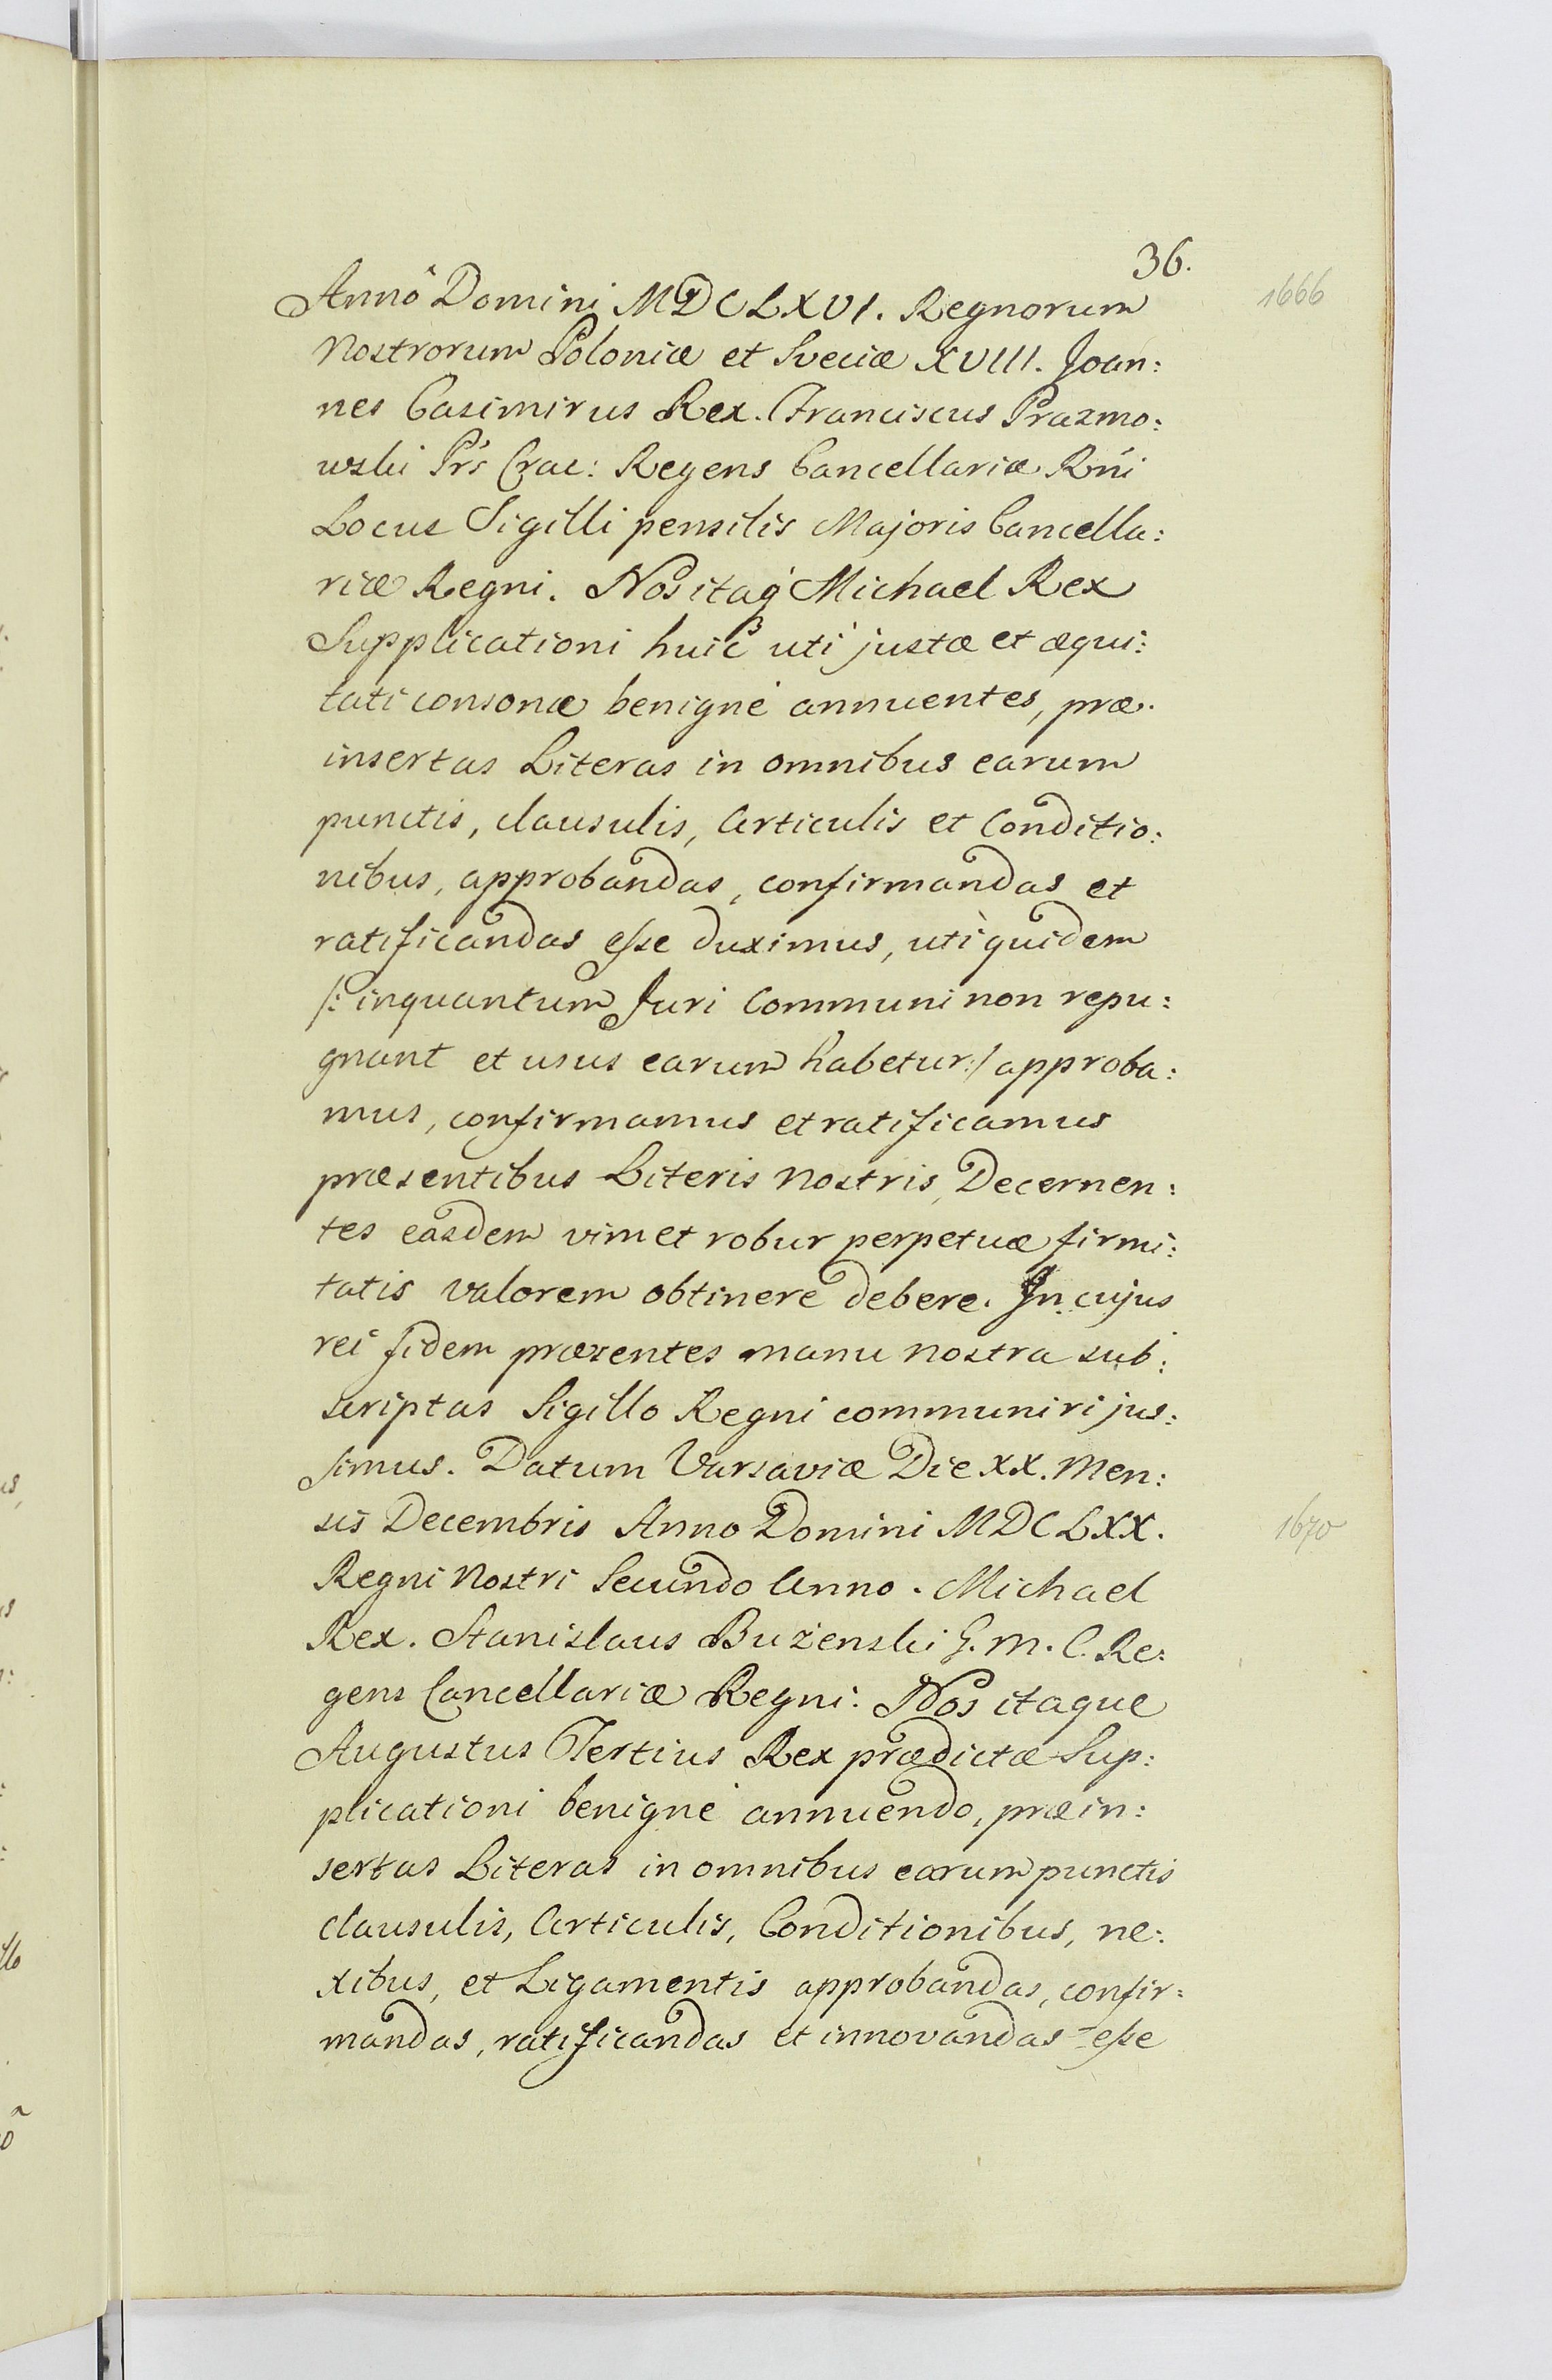 36.
Annô Domini MDCLXVI. Regnorum
1666
Nostrorum Poloniæ et Sveciæ XVIII. Joan:
nes Casimirus Rex. Franciscus Prazmo:
wski Prs Crac: Regens Cancellariæ Rni
Locus Sigilli pensilis Majoris Cancella:
riæ Regni. Nos itaq Michael Rex
Supplicationi huic uti justæ et æqui:
tati consonæ benignè annuentes, præ.
insertas Literas in omnibus earum
punctis, clausulis, Articulis et Conditio:
nibus, approbandas, confirmandas et
ratificandas esse duximus, uti quidem
/: inquantum Juri Communi non repu:
gnant et usus earum habetur :/ approba:
mus, confirmamus et ratificamus
præsentibus Literis Nostris, Decernen:
tes easdem vim et robur perpetuæ firmi:
tatis valorem obtinere debere. In cujus
rei fidem præsentes manu nostra sub:
scriptas Sigillo Regni communiri jus:
simus. Datum Varsaviæ Die XX. Men:
sis Decembris Anno Domini MDCLXX.
1670
Regni Nostri Secundo Anno. Michael
Rex. Stanislaus Bużenski G. M. C. Re:
gens Cancellariæ Regni: Nos itaque
Augustus Tertius Rex prædictæ Sup:
plicationi benignè annuendo, præin:
sertas Literas in omnibus earum punctis
clausulis, Articulis, Conditionibus, ne:
xibus, et Ligamentis approbandas, confir:
mandas, ratificandas et innovandas esse